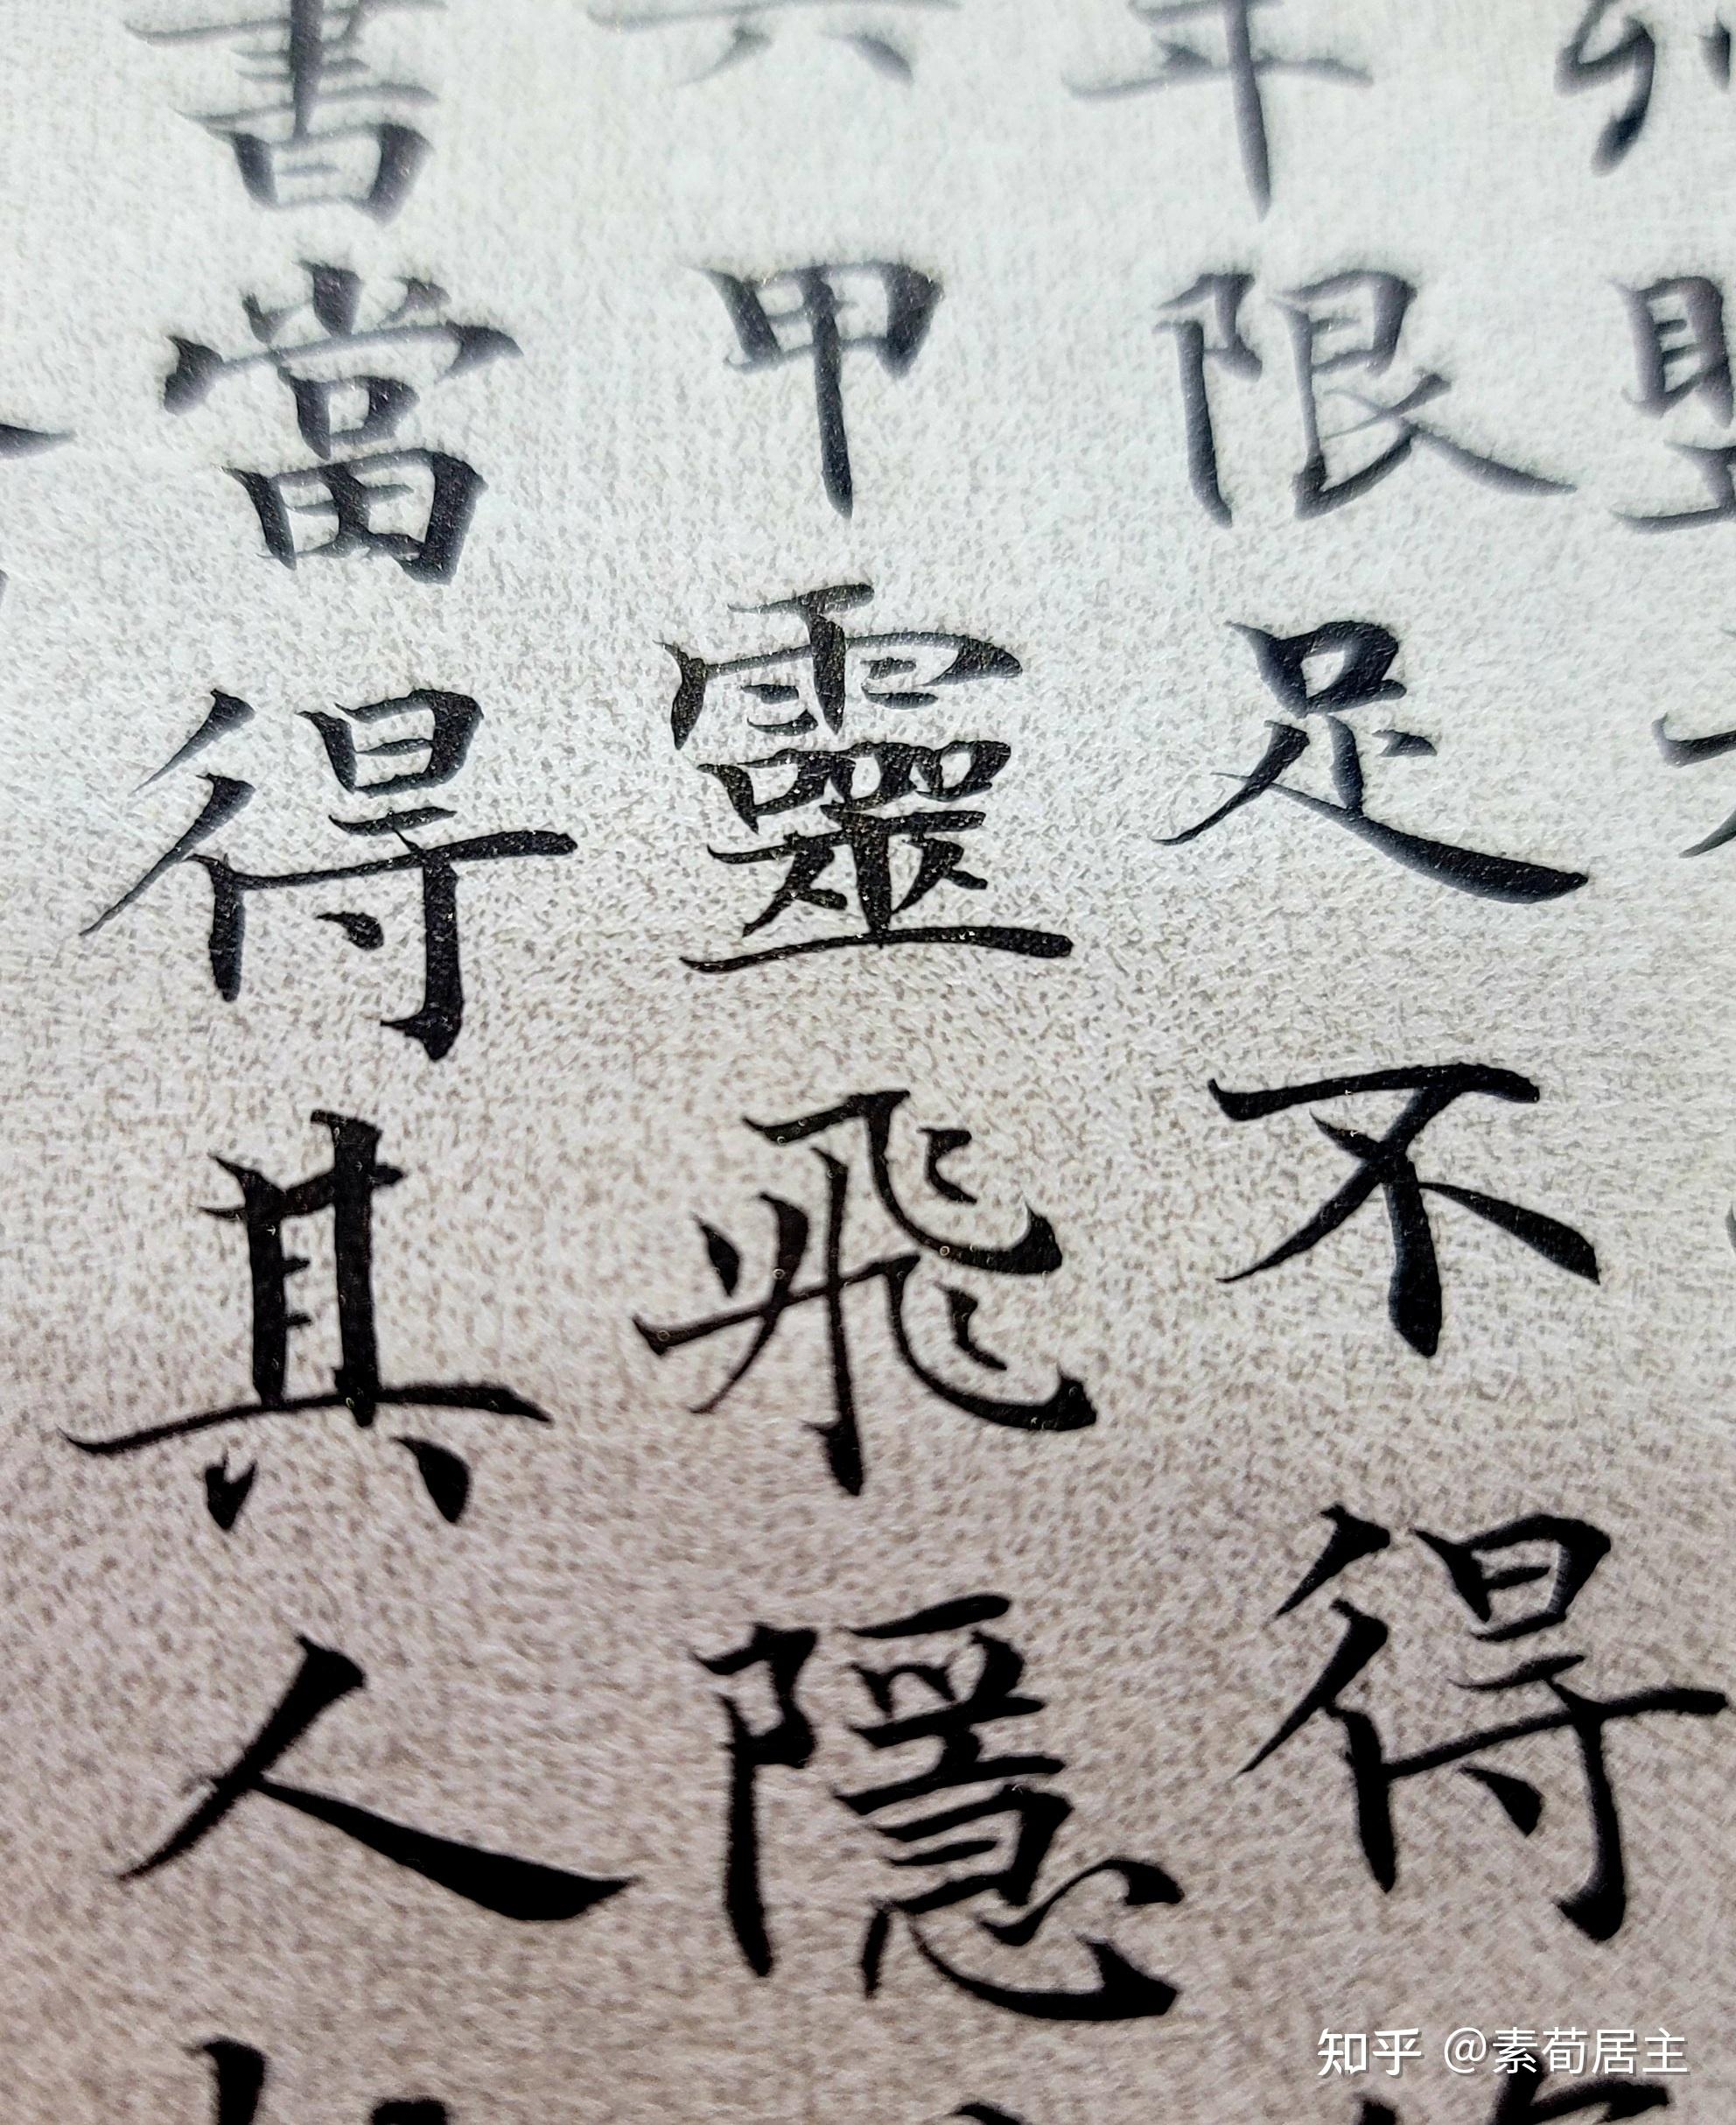 年限足不得
六甲靈飛隱
書當得其人
知乎 @素荀居主